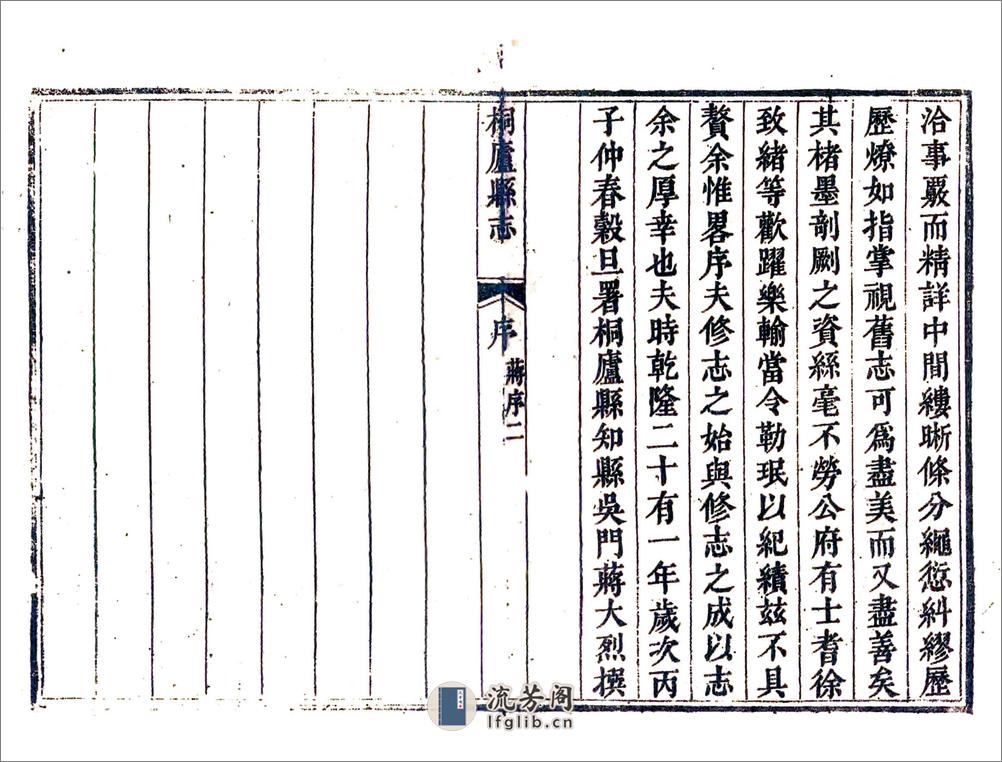 洽事覈而精詳中間縷晣條分繩愆糾繆歷
歷燎如指掌視舊志可爲盡美而又盡善矣
其楮墨剞劂之資絲毫不勞公府有士耆徐
致緒等歡躍樂輸當令勒珉以紀績玆不具
贅余惟畧序夫修志之始與修志之成以志
余之厚幸也夫時乾隆二十有一年歲次丙
子仲春穀旦署桐廬縣知縣吳門蔣大烈撰
桐廬縣志
序
蔣序二
流芳阁
lfglib.cn